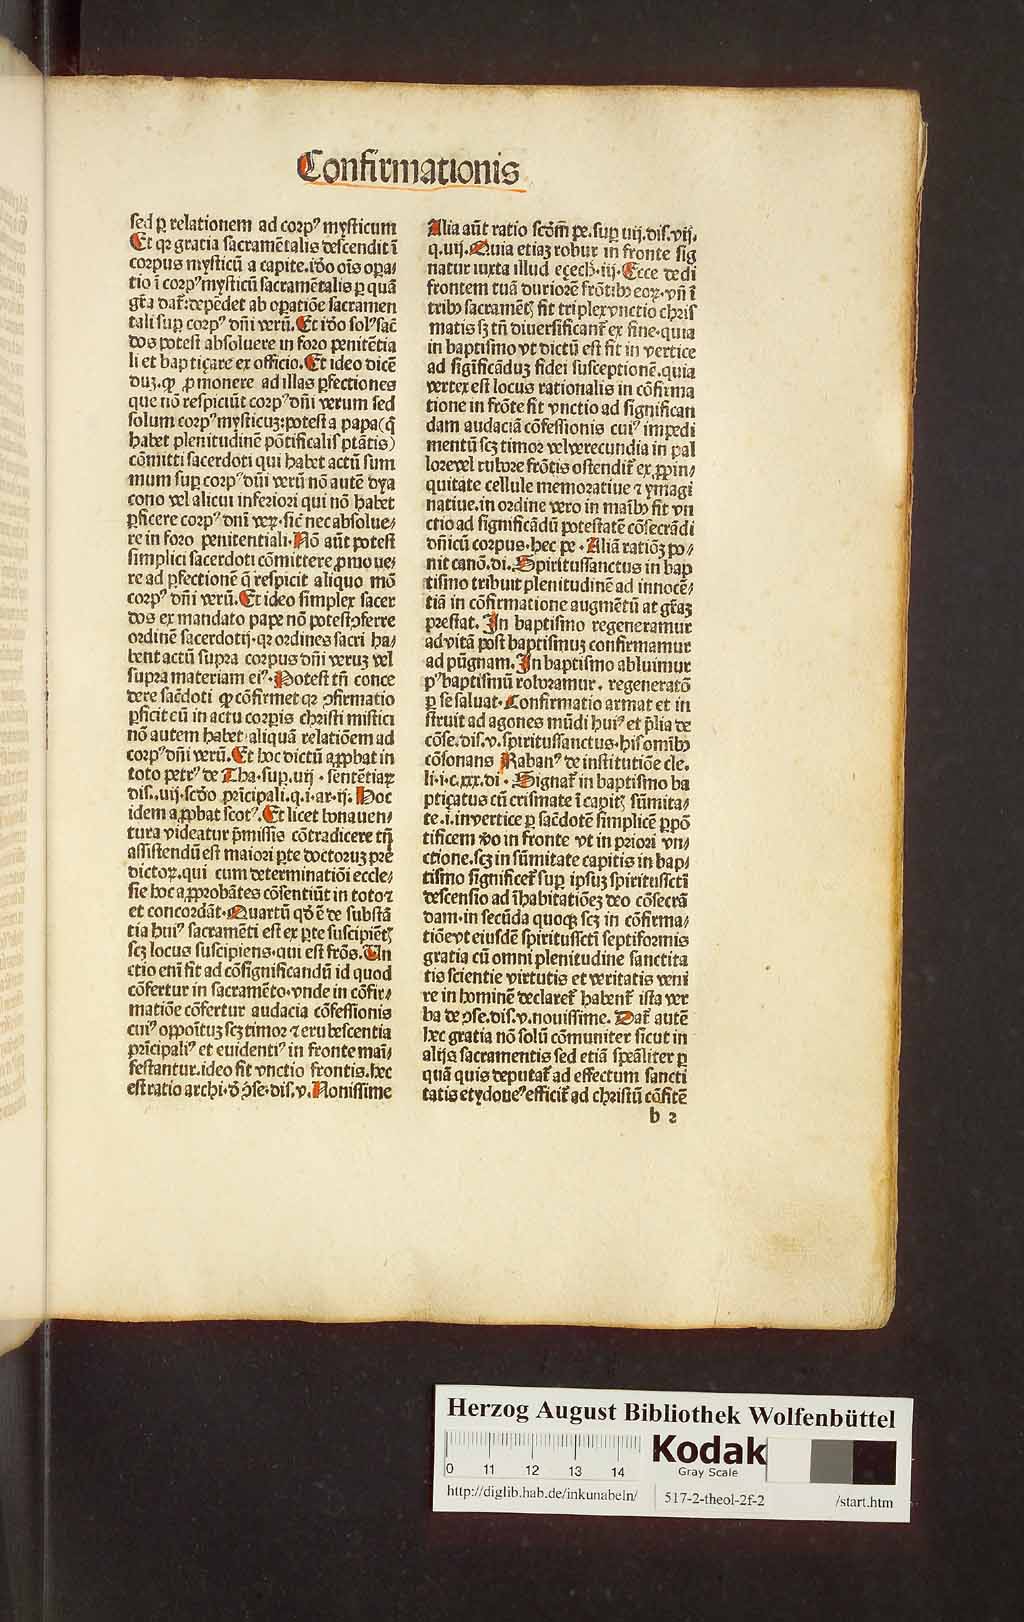 Confirmationis
sed ꝑ relationem ad corpꝰ mysticum
Et qꝛ gratia sacramētalis descendit ī
corpus mysticū a capite.iđo oīs oꝑa⸗
tio ī corpꝰ mysticū sacramētalis ꝑ quā
gr̄a dat᷑.depēdet ab oꝑatiōe sacramen
tali suꝑ corpꝰ dn̄i verū.Et iđo solꝰ sac̄
dos potest absoluere in foro penitētia
li et baptiçare ex officio.Et ideo dicē
duꝫ.ꝙ ꝓmonere ad illas ꝑfectiones
que nō respiciūt corpꝰ dn̄i verum sed
solum corpꝰ mysticuꝫ:potest a papa(q̄
habet plenitudinē pōtificalis ptātis)
cōmitti sacerdoti qui habet actū sum
mum suꝑ corpꝰ dn̄i verū nō autē dya
cono vel alicui inferiori qui nō habet
ꝑficere corpꝰ dn̄i veꝝ.sic̄ nec absolue⸗
re in foro penitentiali.Nō aūt potest
simplici sacerdoti cōmittere ꝓmoue⸗
re ad ꝑfectionē q̄ respicit aliquo mō
corpꝰ dn̄i verū.Et ideo simplex sacer
dos ex mandato pape nō potest ꝯferre
ordinē sacerdotij.qꝛ ordines sacri ha⸗
bent actū supra corpus dn̄i veruꝫ vel
supra materiam eiꝰ.Potest tn̄ conce
dere sac̄doti ꝙ cōfirmet qꝛ ꝯfirmatio
ꝑficit cū in actu corꝑis christi mistici
nō autem habet aliquā relatiōem ad
corpꝰ dn̄i verū.Et hoc dictū aꝓbat in
toto petrꝰ de Tha.suꝑ.iiij.sentētiaꝝ
dis.vij.scđo prīcipali.q.i.ar.ij.Hoc
idem aꝓbat scotꝰ.Et licet bonauen⸗
tura videatur p̄missis cōtradicere tn̄
assistendū est maiori ꝑte doctoruꝫ pre
dictoꝝ.qui cum determinatiōi eccle⸗
sie hoc aꝓbātes cōsentiūt in toto ⁊
et concordāt.Quartū qđ ē de substā
tia huiꝰ sacramēti est ex ꝑte suscipiēt̄
scꝫ locus suscipiens.qui est frōs.Un
ctio enī fit ad cōsignificandū id quod
cōfertur in sacramēto.vnde in cōfir⸗
matiōe cōfertur audacia cōfessionis
cuiꝰ oppoītuꝫ scꝫ timor ⁊ erubescentia
prīcipaliꝰ et euidentiꝰ in fronte maī⸗
festantur.ideo fit vnctio frontis.hec
est ratio archi.đ ꝯse.dis.v.Nouissime
Alia aūt ratio scđm̄ pe.suꝑ iiij.dis.vij.
q.iiij.Quia etiaꝫ robur in fronte sig
natur iuxta illud eçech.iij.Ecce dedi
frontem tuā duriorē frōtibꝫ eoꝝ.vn̄ ī
tribꝫ sacramēt̄ fit triplex vnctio chris
matis sꝫ tn̄ diuersificant᷑ ex fine.quia
in baptismo vt dictū est fit in vertice
ad significāduꝫ fidei susceptionē.quia
vertex est locus rationalis in cōfirma
tione in frōte fit vnctio ad significan
dam audaciā cōfessionis cuiꝰ impedi
mentū scꝫ timor vel verecundia in pal
lore vel rubore frōtis ostendit᷑ ex ꝓpin⸗
quitate cellule memoratiue ⁊ ymagi
natiue.in ordine vero in maībꝫ fit vn
ctio ad significādū potestatē cōsecrādi
dn̄icū corpus.hec pe.Aliā ratiōꝫ po⸗
nit canō.di.Spiritussanctus in bap
tismo tribuit plenitudinē ad innocē⸗
tiā in cōfirmatione augmētū at gr̄aꝫ
prestat.In baptismo regeneramur
ad vitā post baptismuꝫ confirmamur
ad pūgnam.In baptismo abluimur
pꝰ baptismū roboramur.regeneratō
ꝑ se saluat.Confirmatio armat et in
struit ad agones mūdi huiꝰ et p̄lia de
cōse.dis.v.spiritussanctus.his omībꝫ
cōsonans Rabanꝰ de institutiōe cle.
li.i.c.xxx.di.Signat᷑ in baptismo ba
ptiçatus cū crismate ī capit̄ sūmita⸗
te.i.in vertice ꝑ sac̄dotē simplicē ꝑ pō
tificem vo in fronte vt in priori vn⸗
ctione.scꝫ in sūmitate capitis in bap⸗
tismo significet᷑ suꝑ ipsuꝫ spiritusscti
descensio ad īhabitatiōeꝫ deo cōsecrā
dam.in secūda quoqꝫ scꝫ in cōfirma⸗
tiōe vt eiusdē spiritusscti septiformis
gratia cū omni plenitudine sanctita
tis scientie virtutis et veritatis veni
re in hominē declaret᷑ habent᷑ ista ver
ba de ꝯse.dis.v.nouissime.Dat᷑ autē
hec gratia nō solū cōmuniter sicut in
alijs sacramentis sed etiā speāliter ꝑ
quā quis deputat᷑ ad effectum sancti
tatis et ydoneꝰ efficit᷑ ad christū cōfitē
b 2
Herzog August Bibliothek Wolfenbüttel
Kodak
Gray Scale
0 11 12 13 14
http://diglib.hab.de/inkunabeln/ 517-2-theol-2f-2 /start.htm